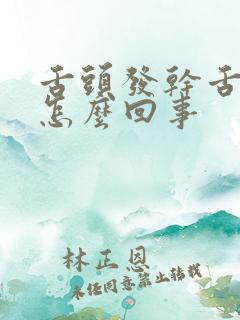 舌頭發幹舌
怎麼回事
林正恩
未经同意禁止转载